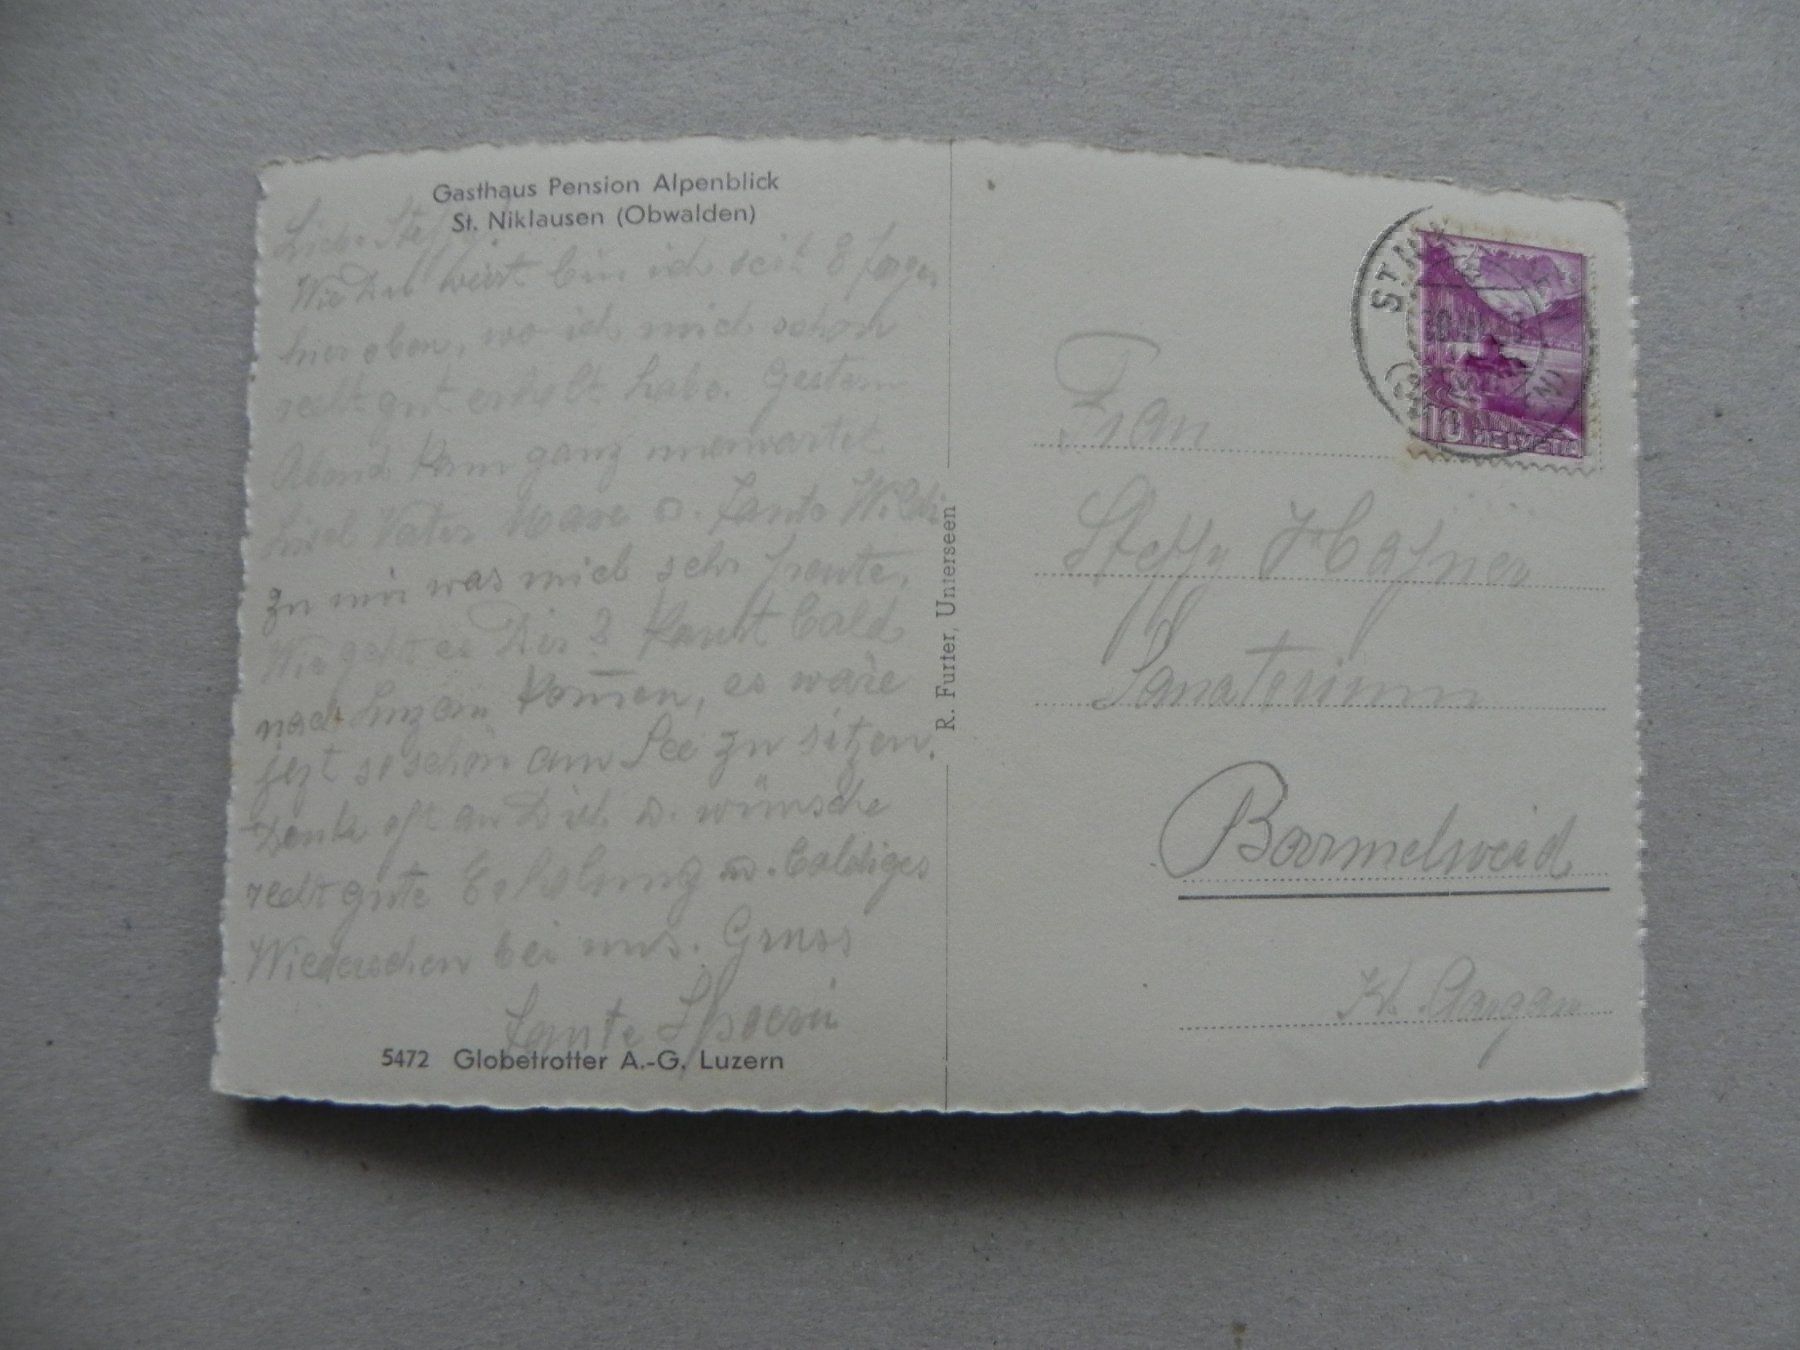 Gasthaus Pension Alpenblick
St. Niklausen (Obwalden)
Liebe Steffy.
Wie Du weist bin ich seit 8 Tagen
hier oben, wo ich mich schon
recht gut erholt habe. Gestern
Abend kam ganz unerwartet
Vater u. Tante
zu mir was mich sehr freute,
Wie geht es Dir? Kanst bald
nach Luzern kom̄en, es wäre
jezt so schön am See zu sitzen.
Denke oft an Dich u. wünsche
recht gute Erholung u. baldiges
Wiedersehen bei uns. Gruss
Tante
5472 Globetrotter A.-G. Luzern
R. Furter, Unterseen
10 HELVETIA
Frau
Steffy Hafner
Sanatorium
Barmelweid
Kt. Aargau